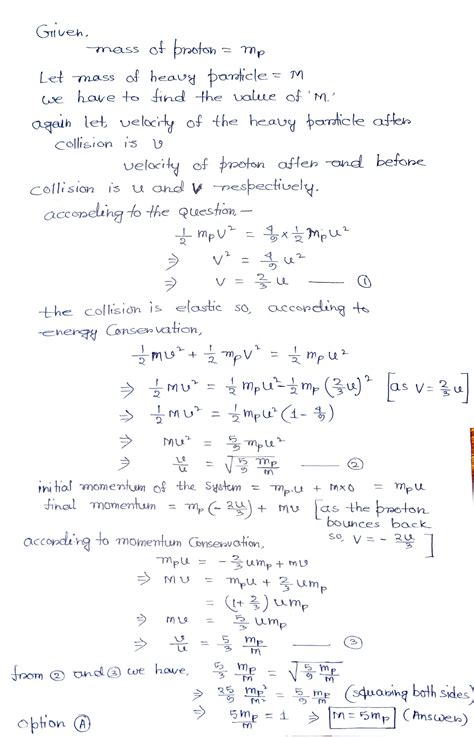 Given,
mass of proton = mₚ
Let mass of heavy particle = M
we have to find the value of 'M.'
again let, velocity of the heavy particle after
collision is υ
velocity of proton after and before
collision is u and V respectively.
according to the question —
1/2 mₚV² = 4/9 × 1/2 mₚu²
⇒ V² = 4/9 u²
⇒ V = 2/3 u —— ①
the collision is elastic so, according to
energy Conservation,
1/2 mυ² + 1/2 mₚV² = 1/2 mₚu²
⇒ 1/2 mυ² = 1/2 mₚu² - 1/2 mₚ (2/3 u)² [as V = 2/3 u]
⇒ 1/2 mυ² = 1/2 mₚu² (1 - 4/9)
⇒ mυ² = 5/9 mₚu²
⇒ υ/u = √(5/9 mₚ/m) —— ②
initial momentum of the system = mₚ.u + m×0 = mₚu
final momentum = mₚ (-2u/3) + mυ [as the proton
bounces back
so, V = -2u/3]
according to momentum Conservation,
mₚu = -2/3 umₚ + mυ
⇒ mυ = mₚu + 2/3 umₚ
= (1 + 2/3) umₚ
⇒ mυ = 5/3 umₚ
⇒ υ/u = 5/3 mₚ/m —— ③
from ② and ③ we have, 5/3 mₚ/m = √(5/9 mₚ/m)
⇒ 25/9 mₚ²/m² = 5/9 mₚ/m (squaring both sides)
⇒ 5mₚ/m = 1 ⇒ M = 5mₚ (Answer)
option Ⓐ